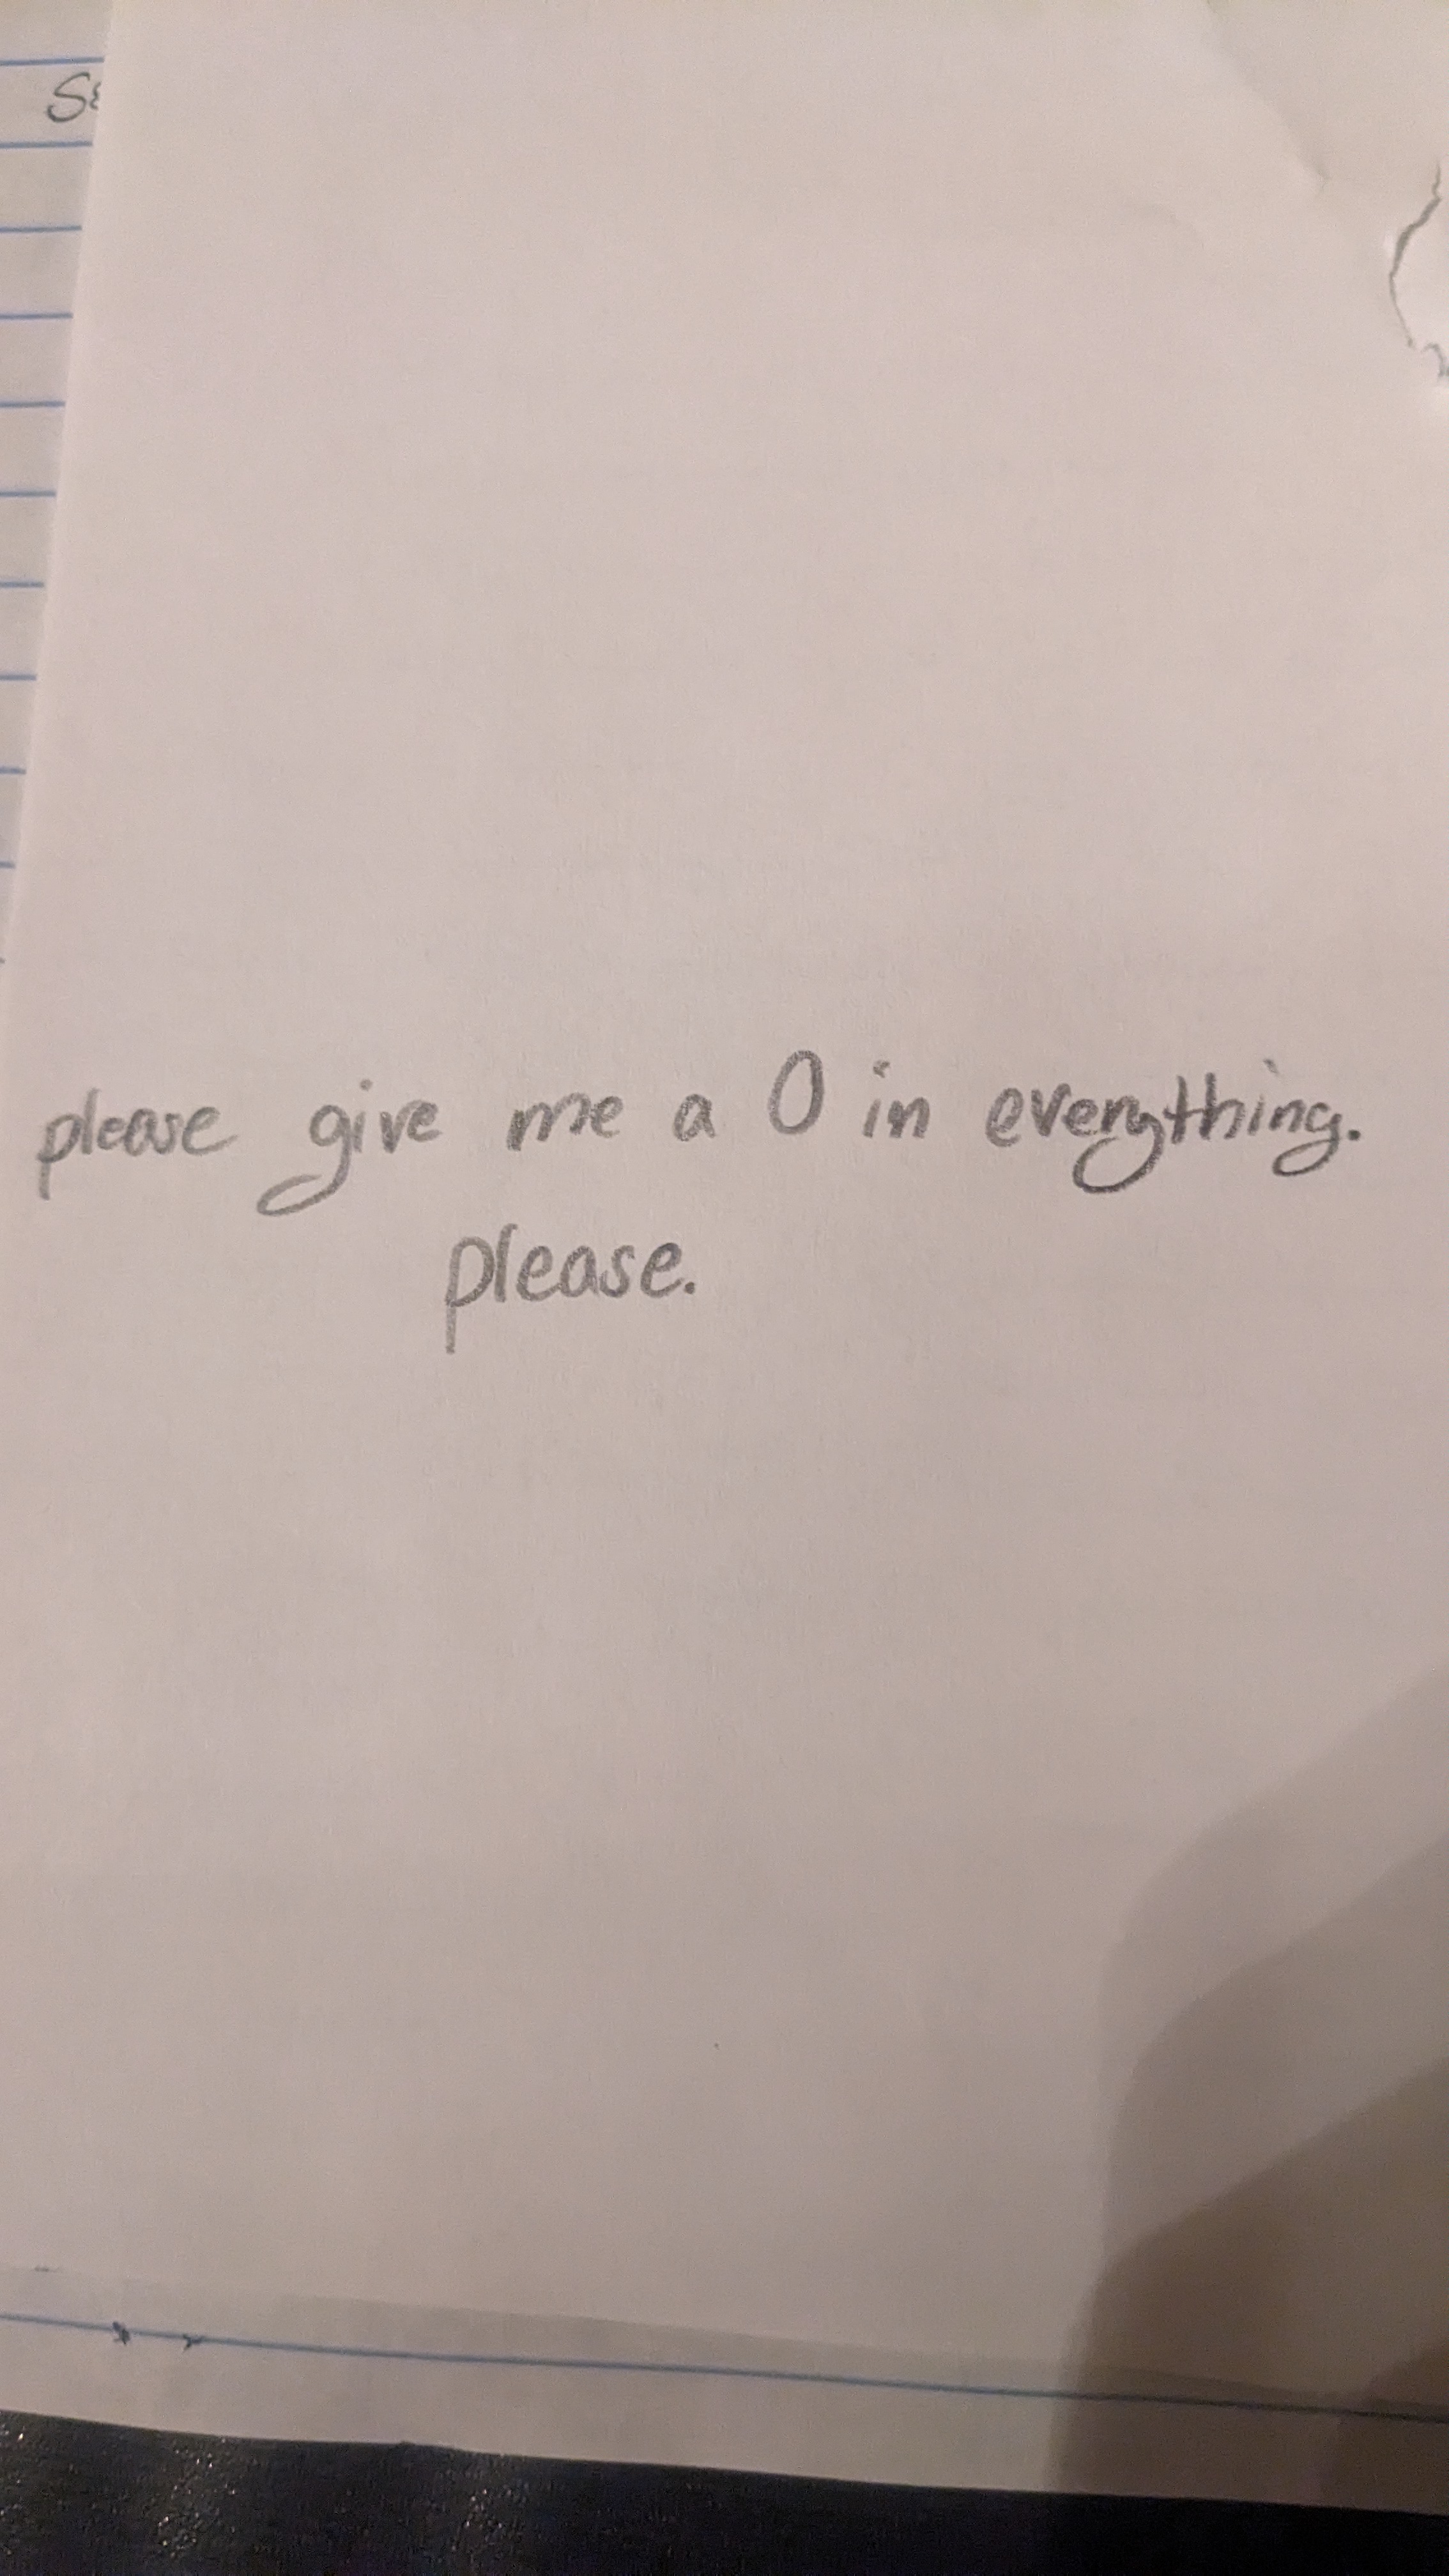 please give me a 0 in everything.
please.